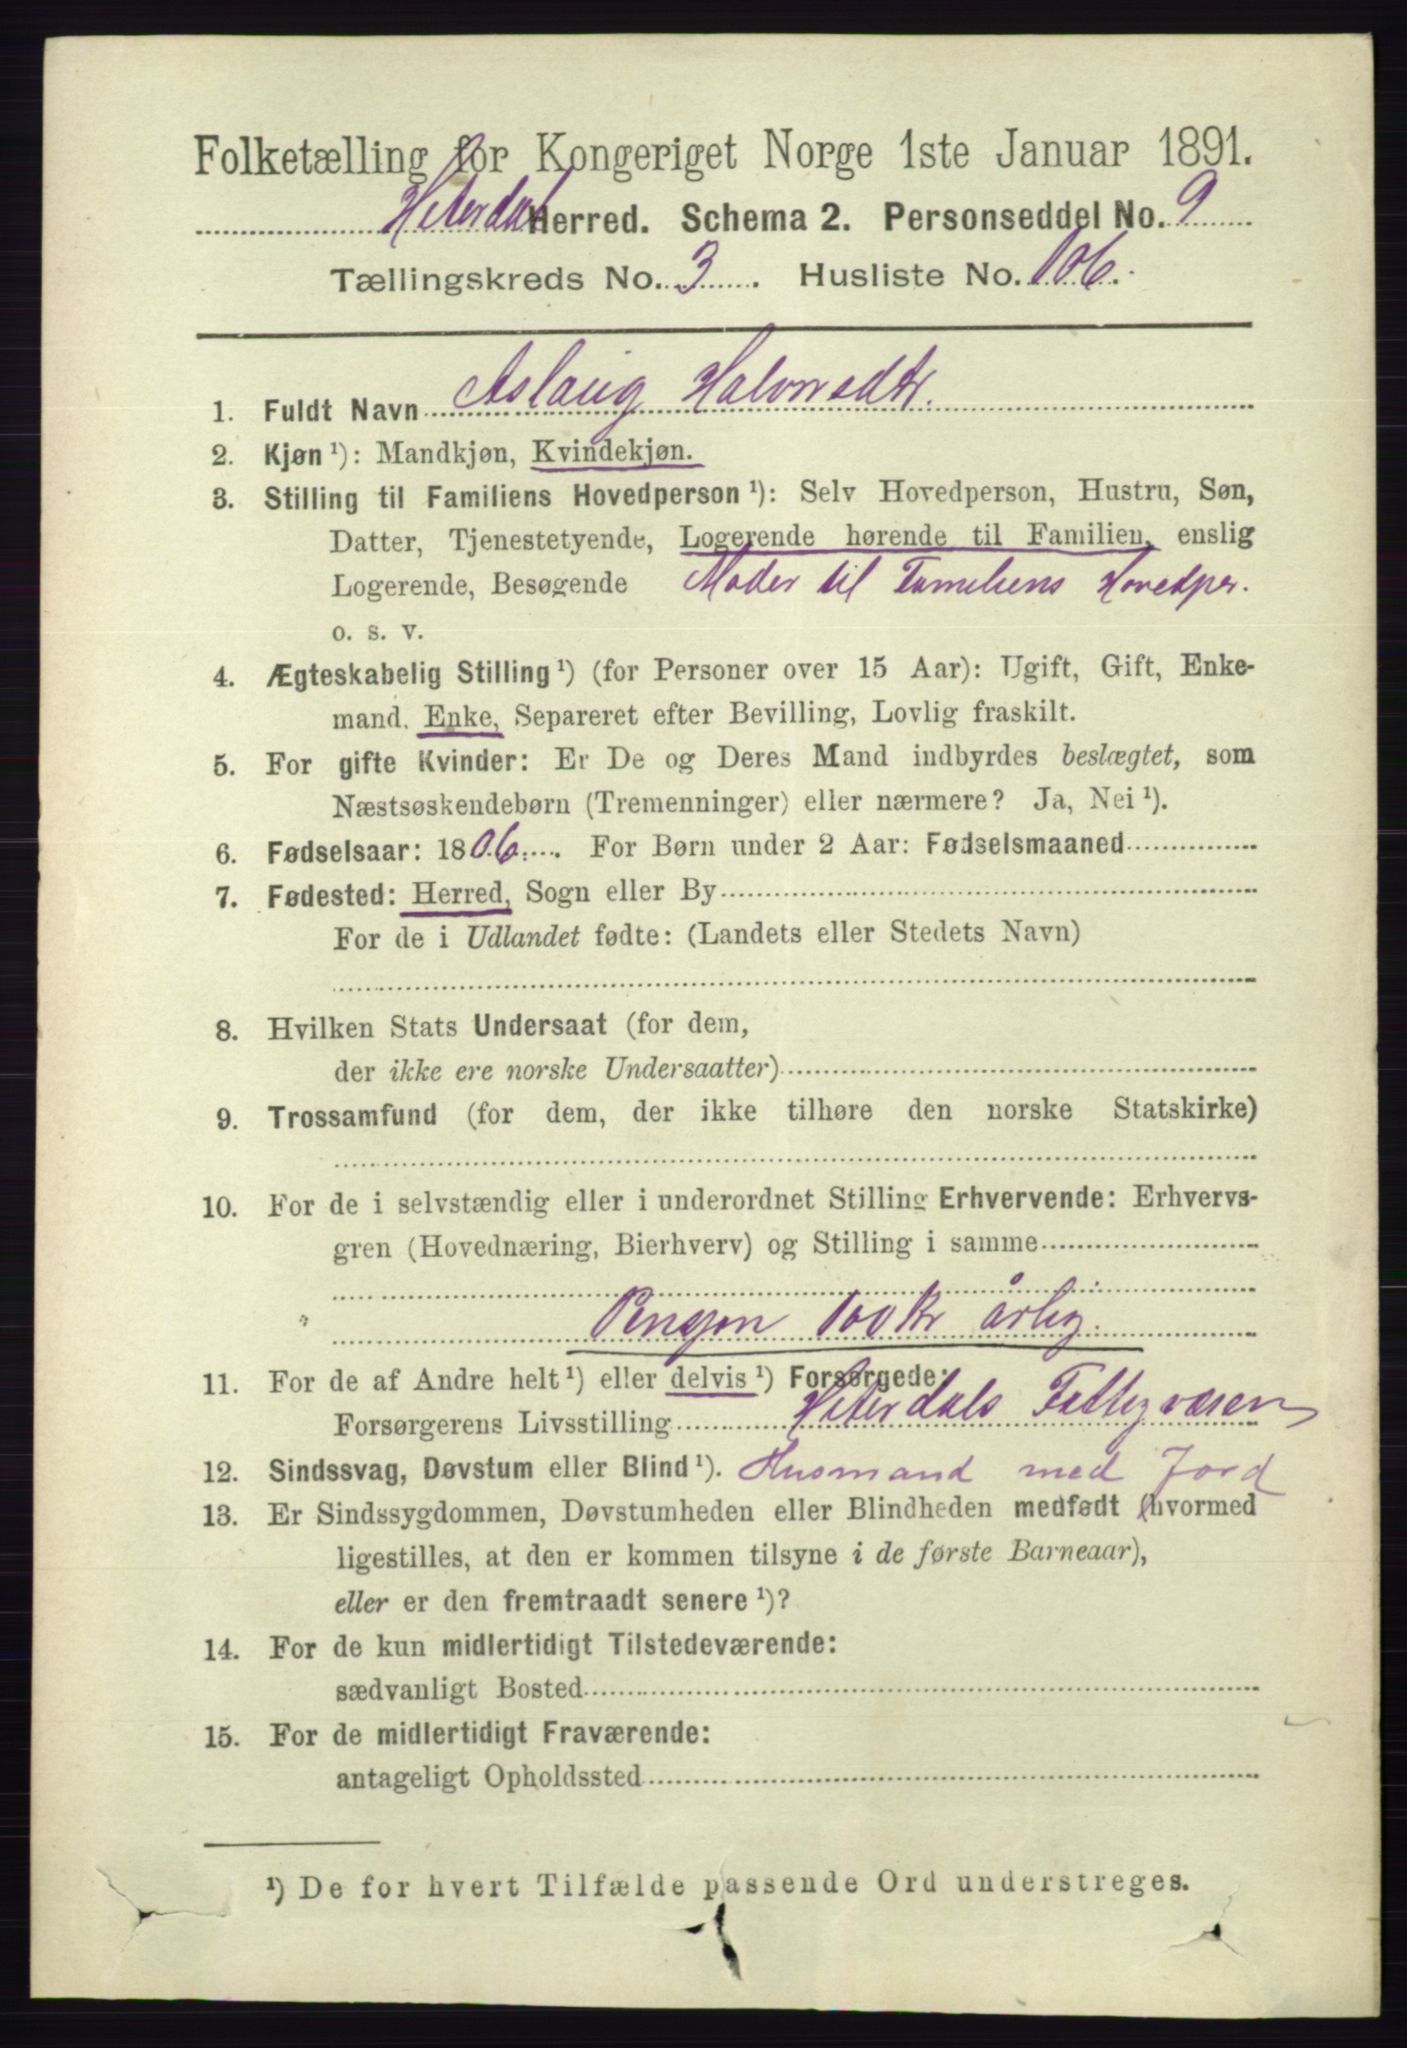 Folketælling for Kongeriget Norge 1ste Januar 1891.
Hiterdal Herred. Schema 2. Personseddel No. 9
Tællingskreds No. 3. Husliste No. 106.
1. Fuldt Navn Aslaug Halvorsdtr.
2. Kjøn ¹): Mandkjøn, Kvindekjøn.
3. Stilling til Familiens Hovedperson ¹): Selv Hovedperson, Hustru, Søn,
Datter, Tjenestetyende, Logerende hørende til Familien, enslig
Logerende, Besøgende Moder til Familiens Hovedper.
o. s. v.
4. Ægteskabelig Stilling ¹) (for Personer over 15 Aar): Ugift, Gift, Enke-
mand, Enke, Separeret efter Bevilling, Lovlig fraskilt.
5. For gifte Kvinder: Er De og Deres Mand indbyrdes beslægtet, som
Næstsøskendebørn (Tremenninger) eller nærmere? Ja, Nei ¹).
6. Fødselsaar: 1806. For Børn under 2 Aar: Fødselsmaaned
7. Fødested: Herred, Sogn eller By
For de i Udlandet fødte: (Landets eller Stedets Navn)
8. Hvilken Stats Undersaat (for dem,
der ikke ere norske Undersaatter)
9. Trossamfund (for dem, der ikke tilhøre den norske Statskirke)
10. For de i selvstændig eller i underordnet Stilling Erhvervende: Erhvervs-
gren (Hovednæring, Bierhverv) og Stilling i samme
Pension 100 Kr årlig.
11. For de af Andre helt ¹) eller delvis ¹) Forsørgede:
Forsørgerens Livsstilling Hiterdals Fattigvæsen
12. Sindssvag, Døvstum eller Blind ¹). Husmand med Jord
13. Er Sindssygdommen, Døvstumheden eller Blindheden medfødt (hvormed
ligestilles, at den er kommen tilsyne i de første Barneaar),
eller er den fremtraadt senere ¹)?
14. For de kun midlertidigt Tilstedeværende:
sædvanligt Bosted
15. For de midlertidigt Fraværende:
antageligt Opholdssted
¹) De for hvert Tilfælde passende Ord understreges.